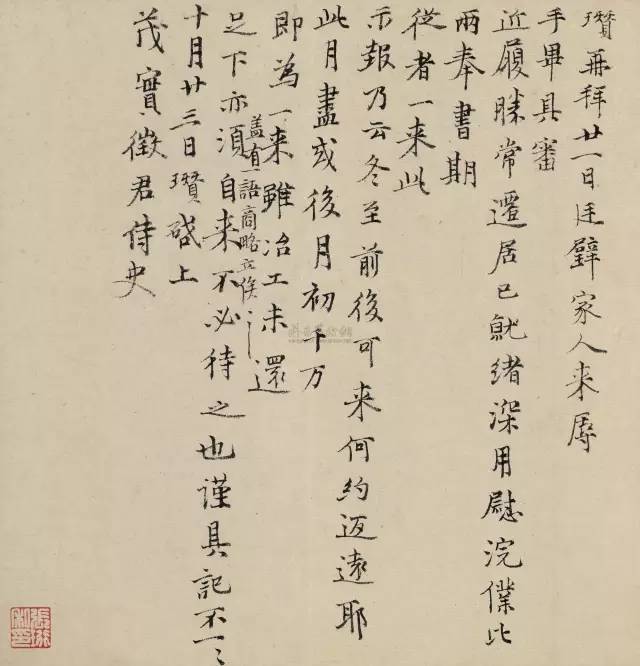 瓚再拜廿一日廷璧家人来辱
手畢具審
近履勝常遷居已就緒深用慰浣僕比
兩奉書期
從者一来此
示報乃云冬至前後可来何約迈遠耶
此月盡或後月初千万
即為一来雖冶工未還
盖有一語商略立俟
足下亦須自来不必待之也謹具記不一〻
十月廿三日瓚啓上
茂實徵君侍史